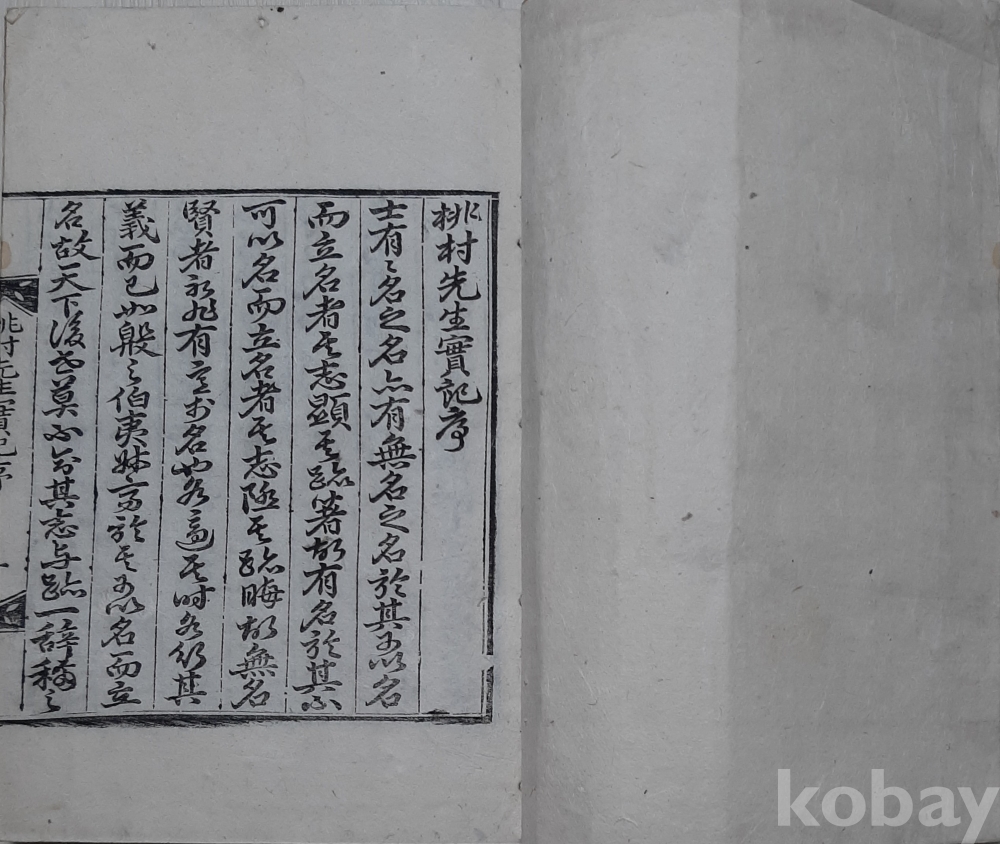 桃村先生實記序
士有〻名之名亦有無名之名於其可以名
而立名者其志顯其跡著故有名於其不
可以名而立名者其志隱其跡晦故無名
賢者初非有意於名也各適其時各行其
義而已如殷之伯夷叔齊於其可以名而立
名故天下後世莫不其志与跡一辭稱之
桃村先生實記序 一
kobay